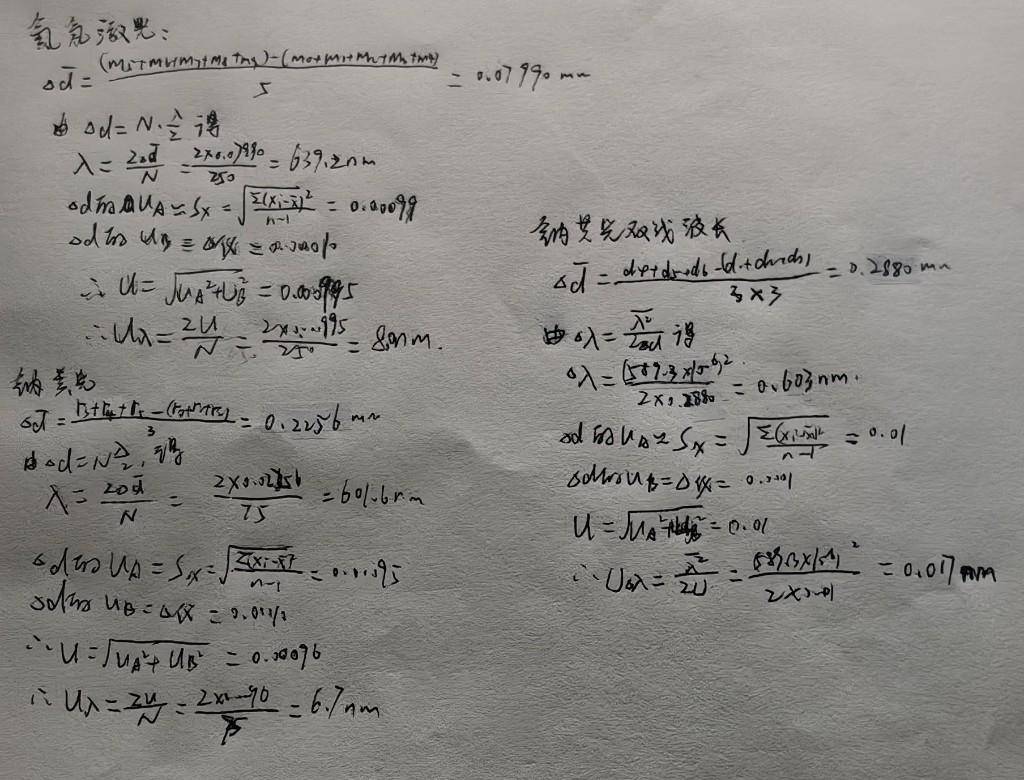 氦氖激光:
Δd̄ = ((m5+m6+m7+m8+m9)-(m0+m1+m2+m3+m4))/5 = 0.07990 mm
由 Δd = N·λ/2 得
λ = 2Δd̄/N = 2×0.07990/250 = 639.2nm
Δd的 UA ≈ Sx = √(Σ(xi-x̄)²/(n-1)) = 0.00099
Δd的 UB = Δ仪 = 0.00010
∴ U = √(UA²+UB²) = 0.000995
∴ Uλ = 2U/N = /250 = 8.0nm.
钠黄光
Δd̄ = (r3+r4+r5-(r0+r1+r2))/3 = 0.2256 mm
由 Δd = N λ/2, 得
λ = 2Δd̄/N = /75 = 601.6nm
Δd的 UA = Sx = √(Σ(xi-x̄)²/(n-1)) = 0.00095
Δd的 UB = Δ仪 = 0.0010
∴ U = √(UA²+UB²) = 0.00096
∴ Uλ = 2U/N = /75 = 6.7nm
钠黄光双线波长
Δd̄ = (d4+d5+d6-(d1+d2+d3))/(3×3) = 0.2880 mm
由 Δλ = λ̄²/2Δd 得
Δλ = (589.3×10⁻⁶)²/(2×0.2880) = 0.603nm.
Δd的 UA ≈ Sx = √(Σ(xi-x̄)²/(n-1)) = 0.01
Δd的 UB = Δ仪 = 0.0001
U = √(UA²+UB²) = 0.01
∴ UΔλ = λ̄²/2U = (589.3×10⁻⁶)²/(2×0.01) = 0.017 nm